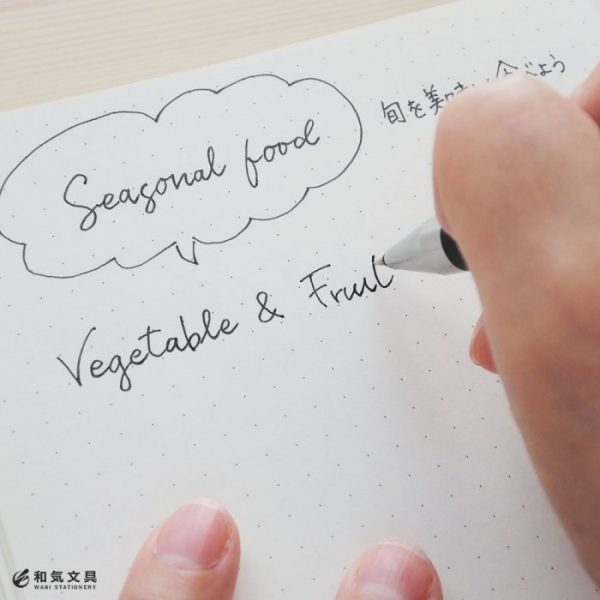 Seasonal food
旬を美味しく食べよう
Vegetable & Fruit
和気文具
WAKI STATIONERY